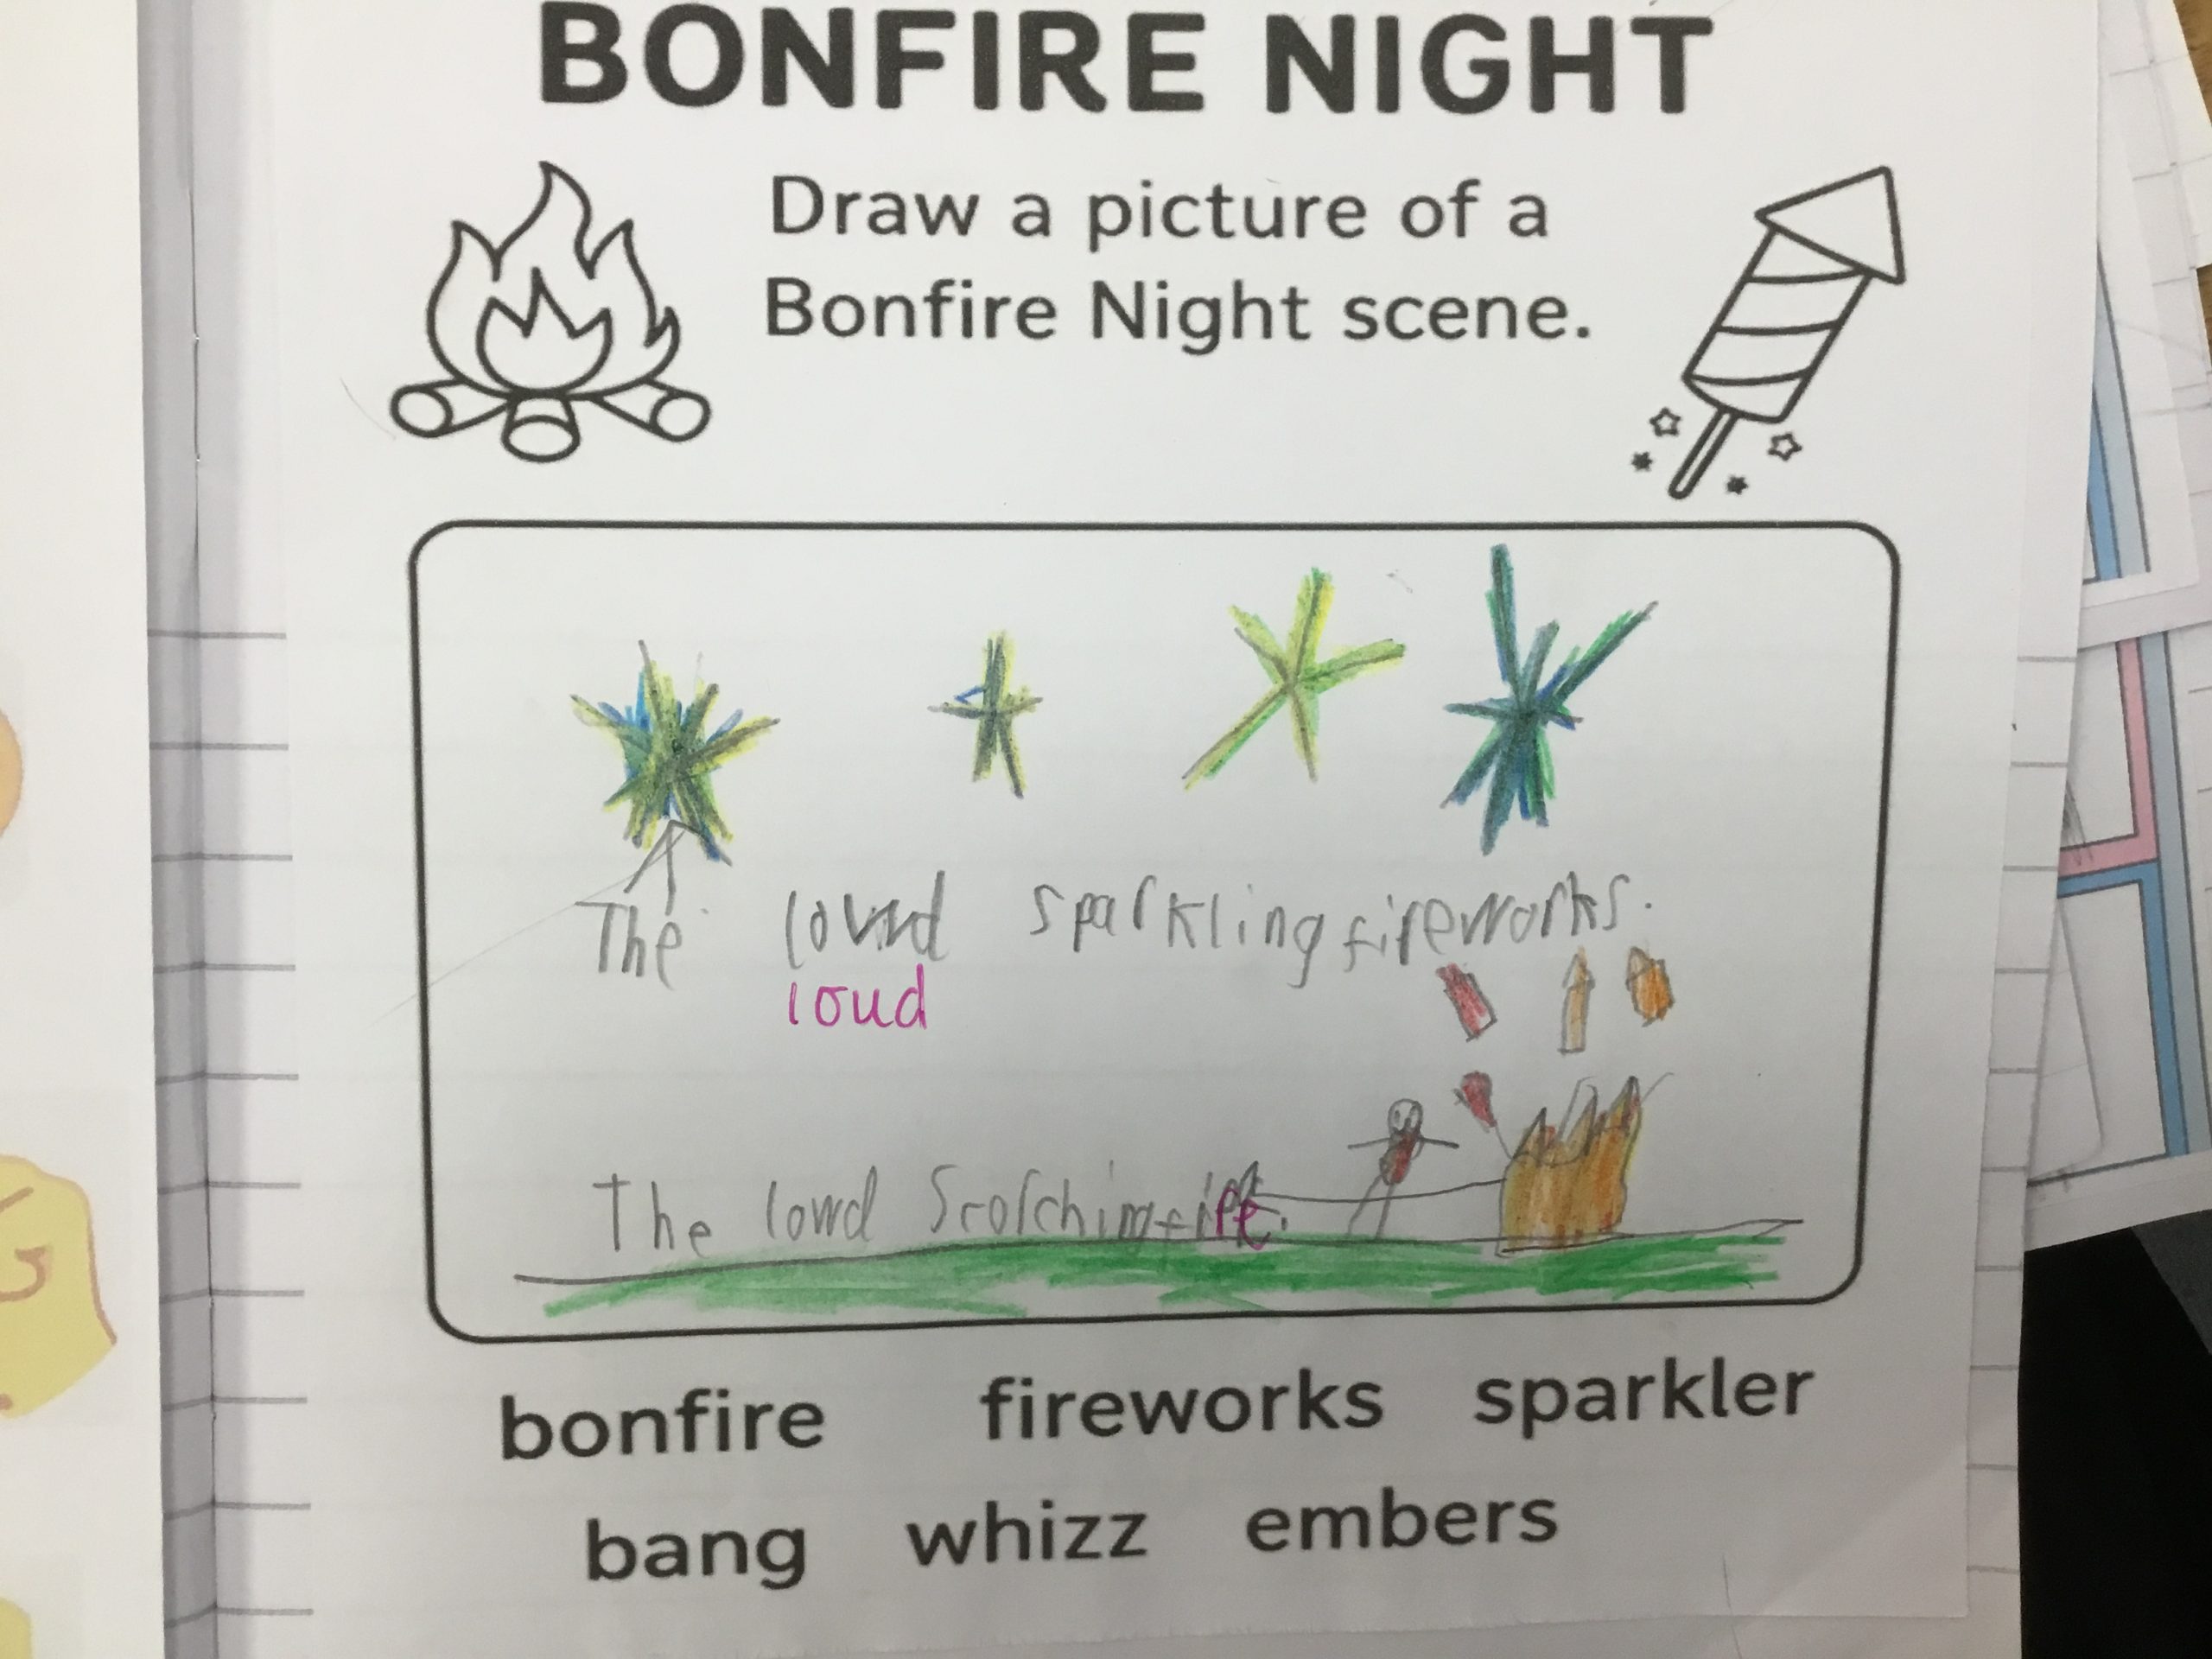 BONFIRE NIGHT
Draw a picture of a
Bonfire Night scene.
The lovnd sparkling fireworks.
loud
The lowd Scorching fire.
bonfire fireworks sparkler
bang whizz embers